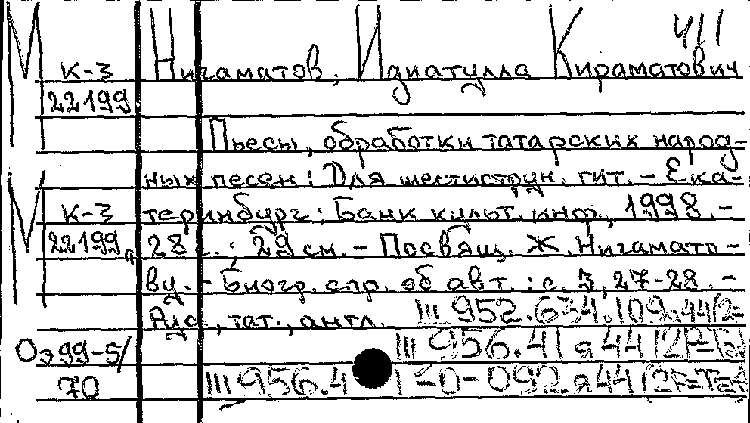 М К-3 Нигаматов, Идиатулла Кираматович Ч11
22199
Пьесы, обработки татарских народ-
ных песен: Для шестиструн. гит. - Ека-
М К-3 теринбург: Банк культ. инф., 1998. -
22199 д 28 с.; 29 см. - Посвящ. Ж. Нигамато-
ву. - Биогр. спр. об авт.: с. 3, 27-28. -
Рус., тат., англ. III 952.634.109.44/2=
Оэ99-5/ III 956.41я44/2Р=Та
70 III 956.4 1-0-092.я44/2Р=Та